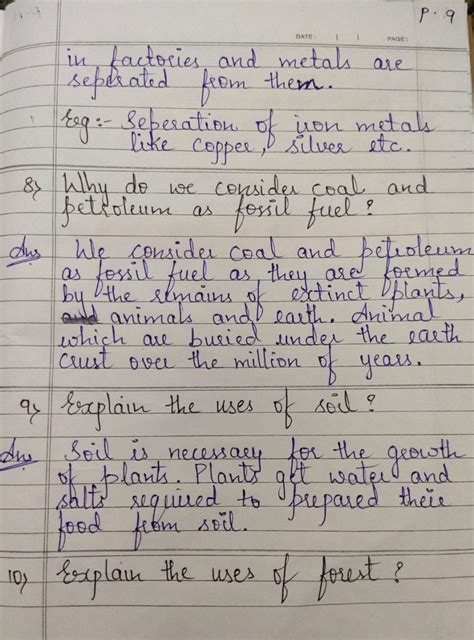 P.9
DATE: | | PAGE:
in factories and metals are
seperated from them.
Eg :- Seperation of iron metals
like copper, silver etc.
8) Why do we consider coal and
petroleum as fossil fuel ?
Ans We consider coal and petroleum
as fossil fuel as they are formed
by the remains of extinct plants,
animals and earth. Animal
which are buried under the earth
crust over the million of years.
9) Explain the uses of soil ?
Ans Soil is necessary for the growth
of plants. Plants get water and
salts required to prepared their
food from soil.
10) Explain the uses of forest ?